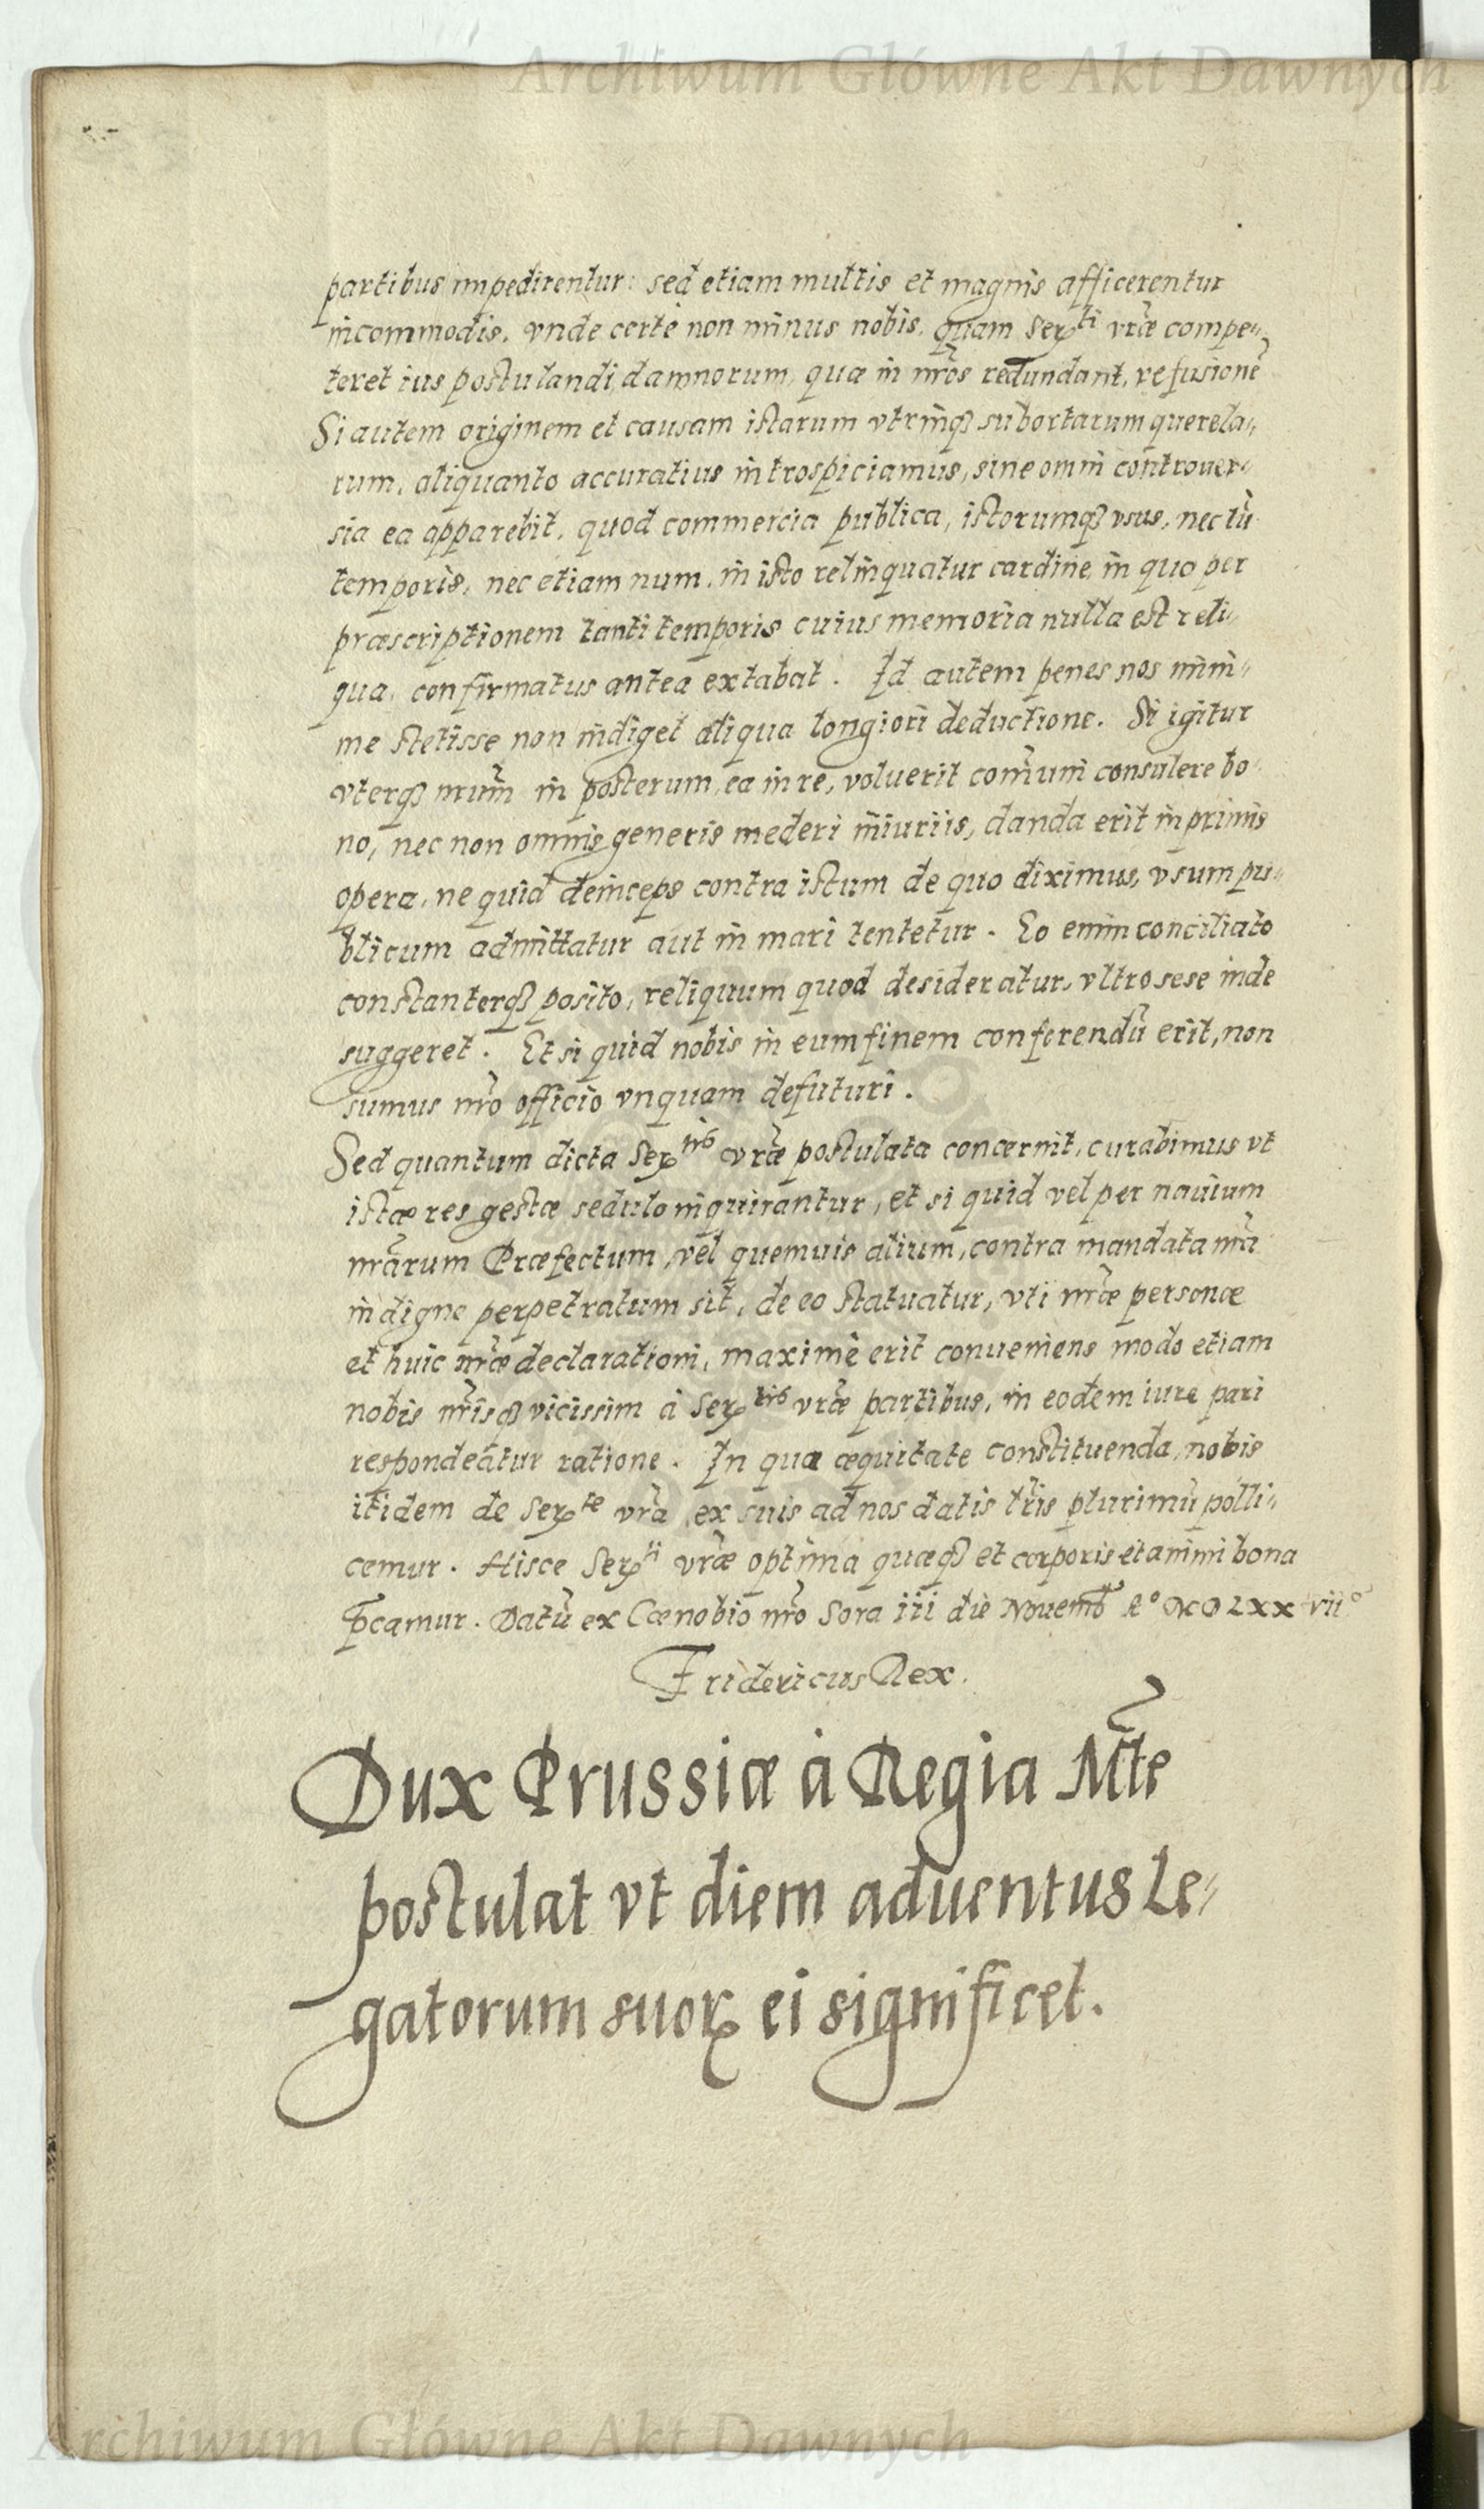 Archiwum Główne Akt Dawnych
partibus impedirentur: sed etiam multis et magnis afficerentur
incommodis, vnde certè non minus nobis, quam Serᵗⁱ vrae compe„
teret ius postulandi, damnorum, quae in nros redundant, refusionē
Si autem originem et causam istarum vtrinq subortarum querela„
rum, aliquanto accuratius introspiciamus, sine omni controuer„
sia ea apparebit, quod commercia publica, istorumq vsus, nec tū
temporis, nec etiam num, in isto relinquatur cardine, in quo per
praescriptionem tanti temporis cuius memoria nulla est reli„
qua, confirmatus antea extabat. Id autem penes nos mini„
me stetisse non indiget aliqua longiori deductione. Si igitur
vterq nrum in posterum, ea in re, voluerit comuni consulere bo„
no, nec non omnis generis mederi iniuriis, danda erit inprimis
opera, ne quid deinceps contra istum de quo diximus, vsum pu„
blicum admittatur aut in mari tentetur. Eo enim conciliato
constanterq posito, reliquum quod desideratur, vltro sese inde
suggeret. Et si quid nobis in eum finem conferendū erit, non
sumus nro officio vnquam defuturi.
Sed quantum dicta Serᵗⁱˢ vrae postulata concernit, curabimus vt
istae res gestae sedulo inquirantur, et si quid vel per nauium
nrarum Praefectum, vel quemuis alium, contra mandata nra
indigne perpetratum sit, de eo statuatur, vti nrae personae
et huic nrae declarationi, maximè erit conueniens modo etiam
nobis nrisq vicissim à Serᵗⁱˢ vrae partibus, in eodem iure pari
respondeatur ratione. In qua aequitate constituenda, nobis
itidem de Serᵗᵉ vra ex suis ad nos datis lris plurimū polli„
cemur. Hisce Serᵗⁱ vrae optima quaeq et corporis et animi bona
p̄camur. Datū ex Coenobio nro Sora iii die Nouemb A° MDLXXvii°
Fridericus Rex.
Dux Prussiae à Regia Mte
postulat vt diem aduentus Le„
gatorum suoꝝ ei significet.
Archiwum Główne Akt Dawnych